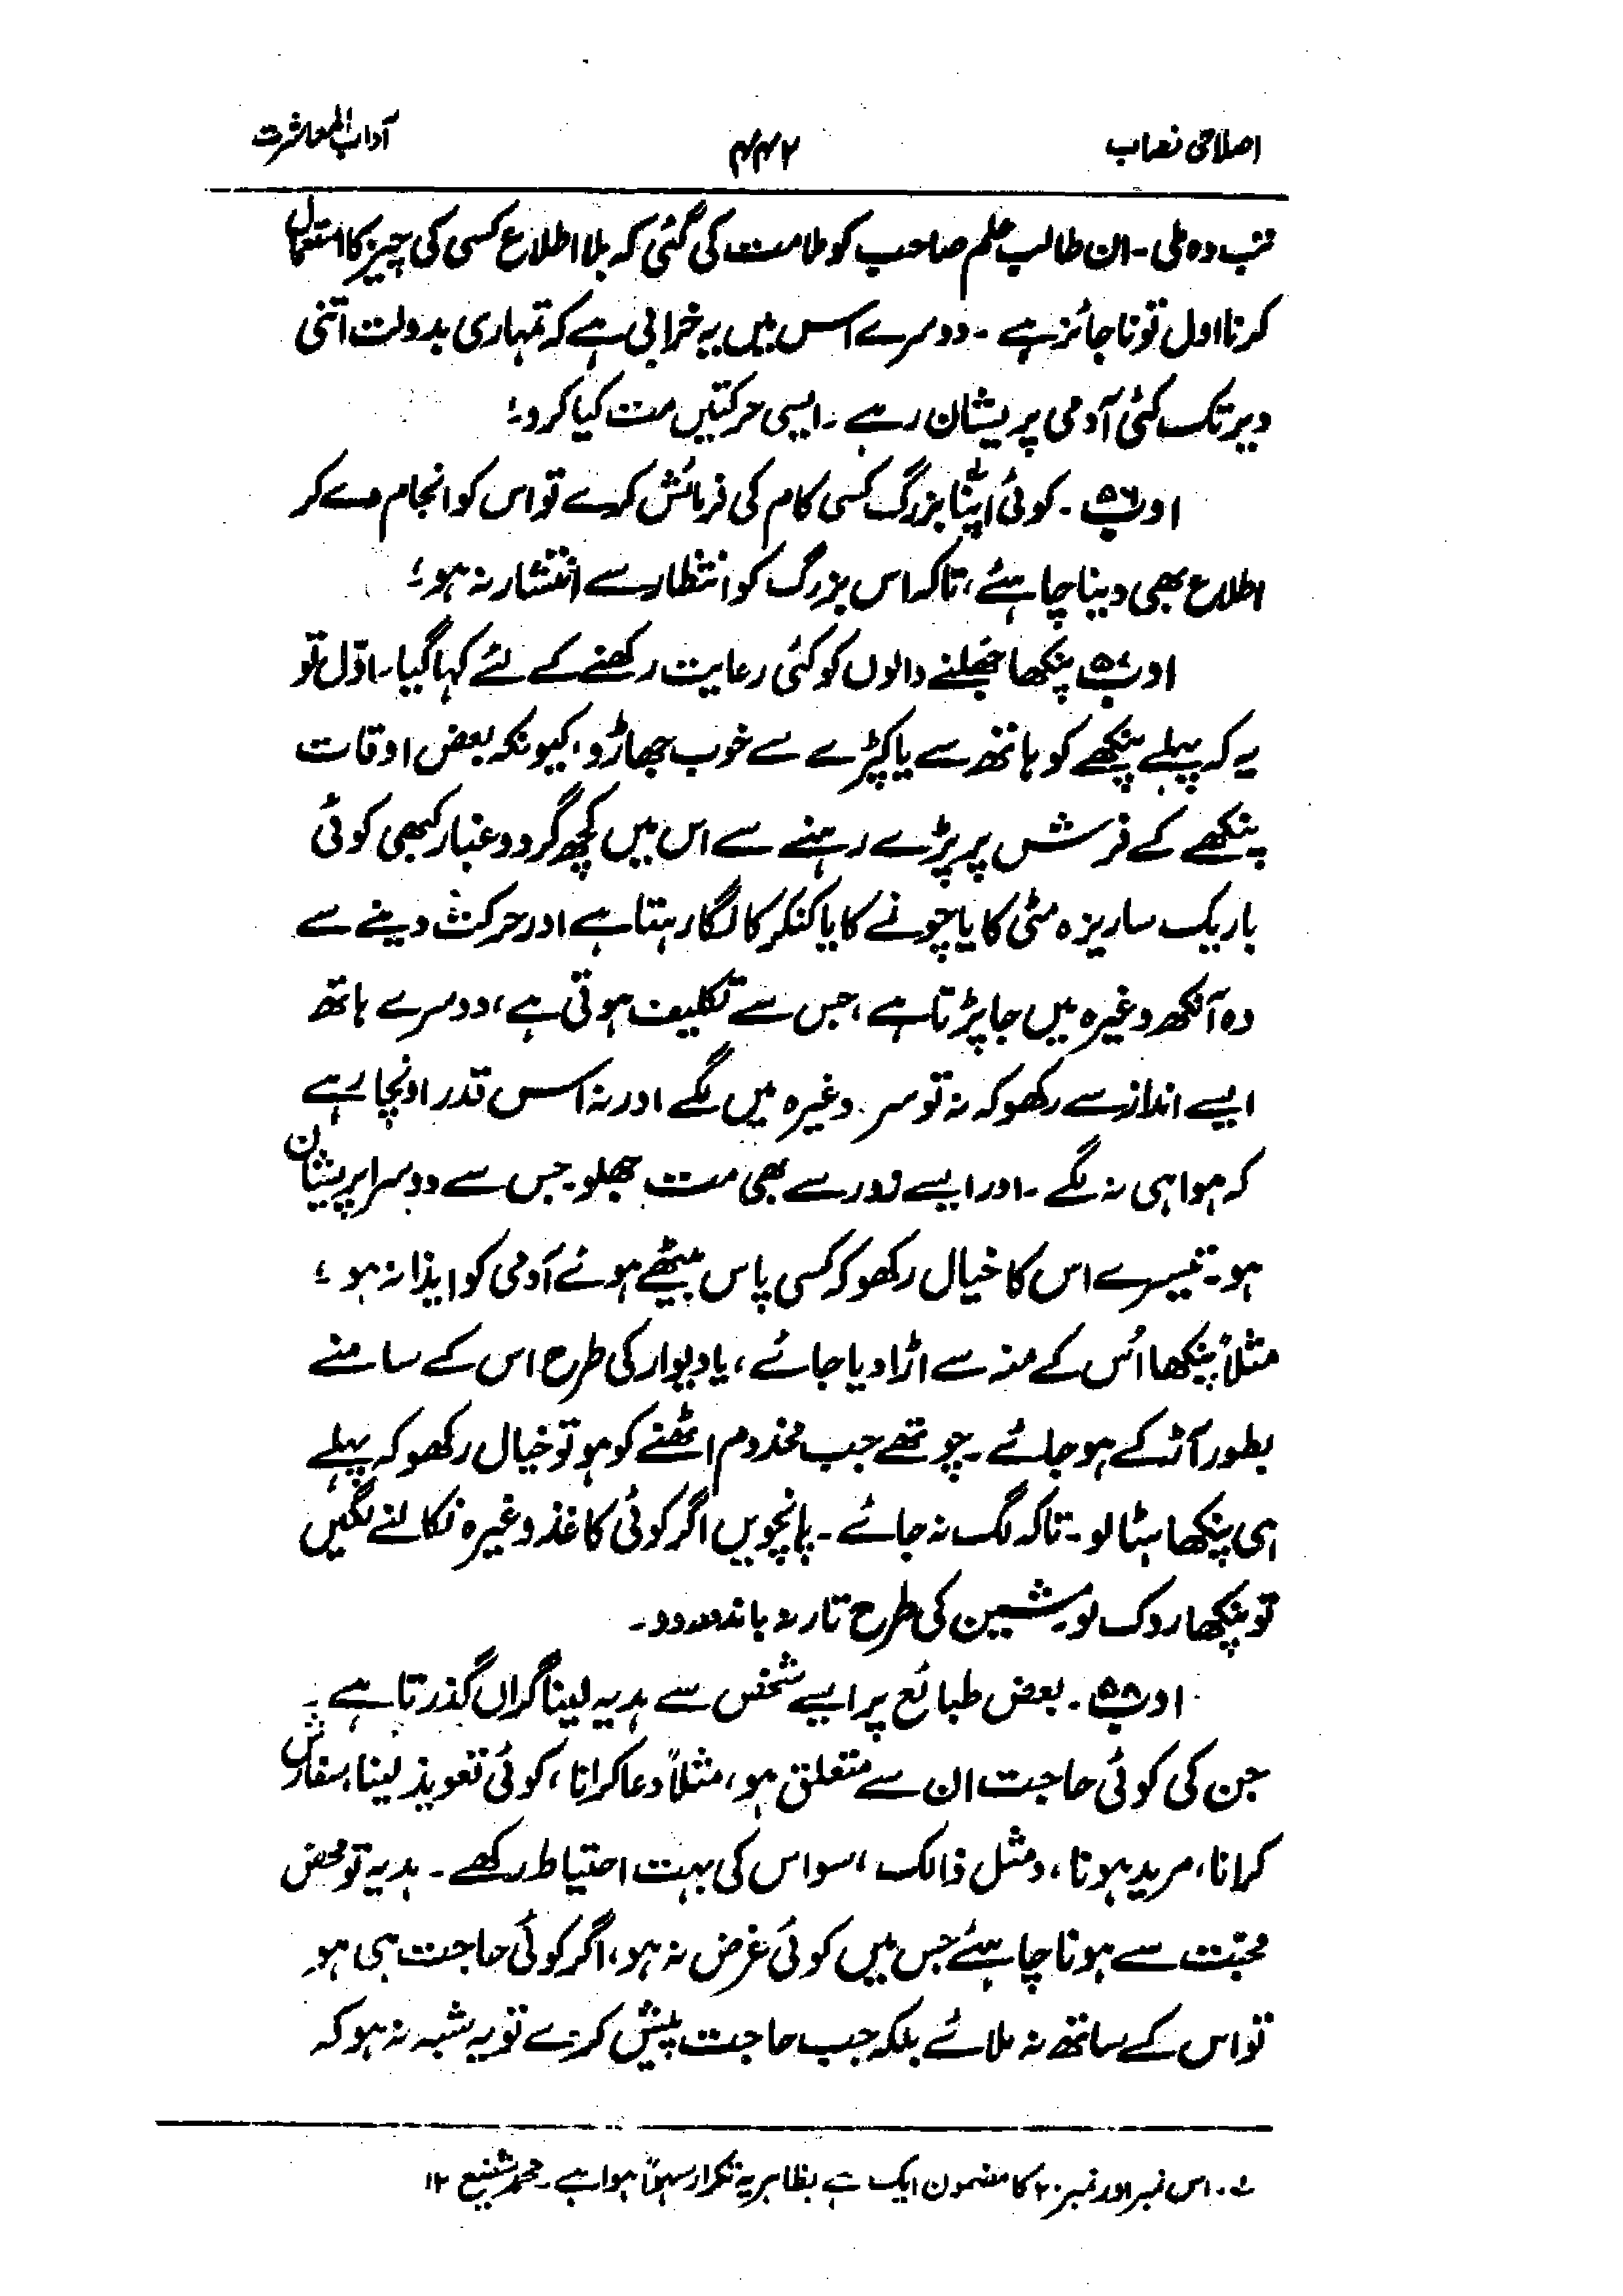 اصلاحی نصاب
۴۴۲
آداب المعاشرت
تب وہ ملی۔ ان طالب علم صاحب کو ملامت کی گئی کہ بلا اطلاع کسی کی چیز کا استعمال
کرنا اول تو ناجائز ہے۔ دوسرے اس میں یہ خرابی ہے کہ تمہاری بدولت اتنی
دیر تک کئی آدمی پریشان رہے۔ ایسی حرکتیں مت کیا کرو؛
ادب ۵۶۔ کوئی اپنا بزرگ کسی کام کی فرمائش کرے تو اس کو انجام دے کر
اطلاع بھی دینا چاہئے، تاکہ اس بزرگ کو انتظار سے انتشار نہ ہو؛
ادب ۵۷ پنکھا جھلنے والوں کو کئی رعایت رکھنے کے لئے کہا گیا۔ اوّل تو
یہ کہ پہلے پنکھے کو ہاتھ سے یا کپڑے سے خوب جھاڑو، کیونکہ بعض اوقات
پنکھے کے فرش پر پڑے رہنے سے اس میں کچھ گرد و غبار کبھی کوئی
باریک سا ریزہ مٹی کا یا چونے کا یا کنکر کا لگا رہتا ہے اور حرکت دینے سے
وہ آنکھ وغیرہ میں جا پڑتا ہے، جس سے تکلیف ہوتی ہے، دوسرے ہاتھ
ایسے انداز سے رکھو کہ نہ تو سر وغیرہ میں لگے اور نہ اس قدر اونچا رہے
کہ ہوا ہی نہ لگے۔ اور ایسے زور سے بھی مت جھلو۔ جس سے دوسرا پریشان
ہو۔ تیسرے اس کا خیال رکھو کہ کسی پاس بیٹھے ہوئے آدمی کو ایذا نہ ہو؛
مثلاً پنکھا اُس کے منہ سے اڑا دیا جائے، یا دیوار کی طرح اس کے سامنے
بطور آڑ کے ہو جائے۔ چوتھے جب مخدوم اٹھنے کو ہو تو خیال رکھو کہ پہلے
ہی پنکھا ہٹا لو۔ تاکہ لگ نہ جائے۔ پانچویں اگر کوئی کاغذ وغیرہ نکالنے لگیں
تو پنکھا روک لو۔ مشین کی طرح تار نہ باندھ دو۔
ادب ۵۸۔ بعض طبائع پر ایسے شخص سے ہدیہ لینا گراں گذرتا ہے۔
جن کی کوئی حاجت ان سے متعلق ہو، مثلاً دعا کرانا، کوئی تعویذ لینا، سفارش
کرانا، مرید ہونا، ومثل ذالک، سو اس کی بہت احتیاط رکھے۔ ہدیہ تو محض
محبّت سے ہونا چاہئے جس میں کوئی غرض نہ ہو، اگر کوئی حاجت ہی ہو
تو اس کے ساتھ نہ ملائے بلکہ جب حاجت پیش کرے تو یہ شبہ نہ ہو کہ
اس نمبر اور نمبر ۲۰ کا مضمون ایک ہے بظاہر یہ تکرار سہواً ہوا ہے۔ محمد شفیع ۱۲